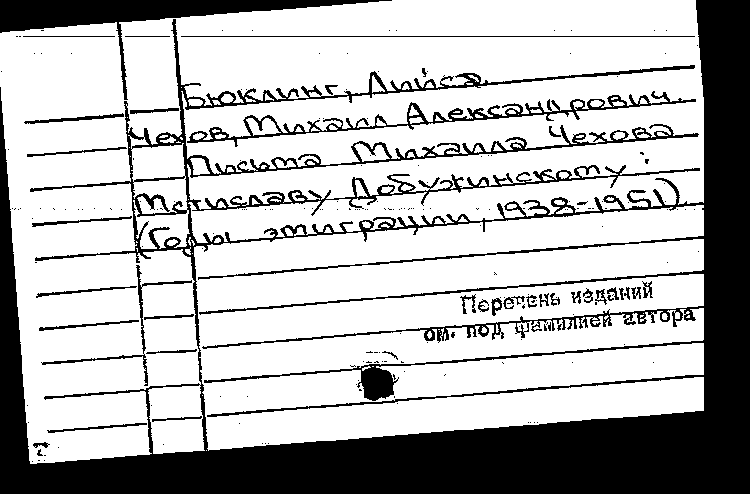 Бюклинг, Лийса.
Чехов, Михаил Александрович.
Письма Михаила Чехова
Мстиславу Добужинскому:
(Годы эмиграции, 1938-1951).
Перечень изданий
см. под фамилией автора